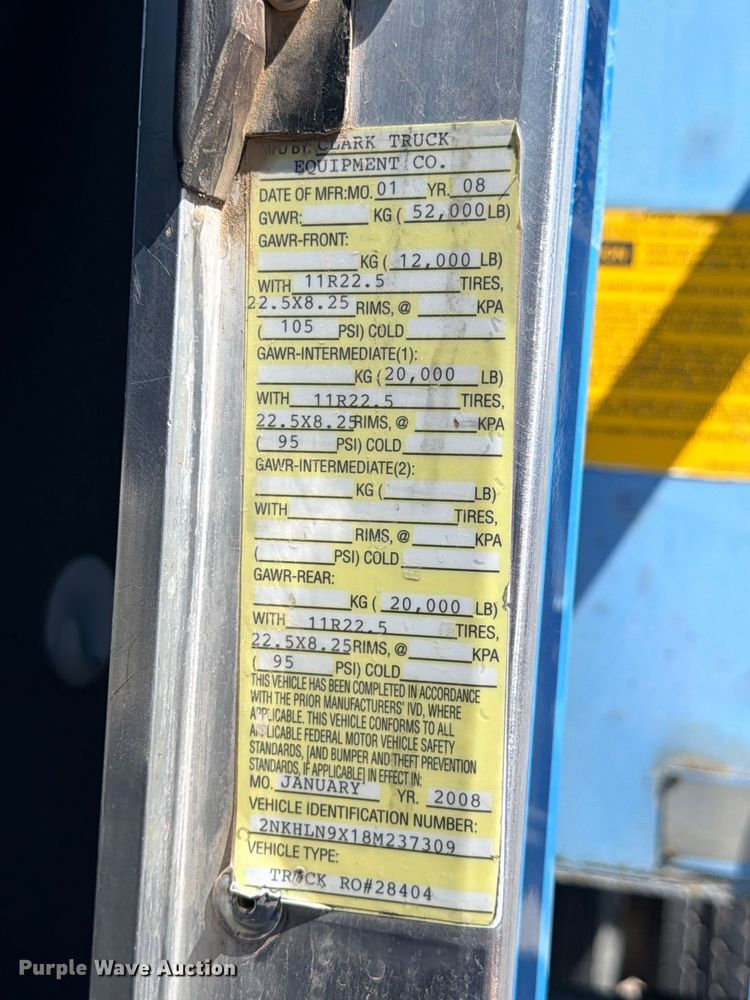 MFD BY: CLARK TRUCK
EQUIPMENT CO.
DATE OF MFR:MO. 01 YR. 08
GVWR: KG ( 52,000 LB)
GAWR-FRONT:
KG ( 12,000 LB)
WITH 11R22.5 TIRES,
22.5X8.25 RIMS, @ KPA
( 105 PSI) COLD
GAWR-INTERMEDIATE(1):
KG ( 20,000 LB)
WITH 11R22.5 TIRES,
22.5X8.25 RIMS, @ KPA
( 95 PSI) COLD
GAWR-INTERMEDIATE(2):
KG ( LB)
WITH TIRES,
RIMS, @ KPA
( PSI) COLD
GAWR-REAR:
KG ( 20,000 LB)
WITH 11R22.5 TIRES,
22.5X8.25 RIMS, @ KPA
( 95 PSI) COLD
THIS VEHICLE HAS BEEN COMPLETED IN ACCORDANCE
WITH THE PRIOR MANUFACTURERS' IVD, WHERE
APPLICABLE. THIS VEHICLE CONFORMS TO ALL
APPLICABLE FEDERAL MOTOR VEHICLE SAFETY
STANDARDS, [AND BUMPER AND THEFT PREVENTION
STANDARDS, IF APPLICABLE] IN EFFECT IN:
MO. JANUARY YR. 2008
VEHICLE IDENTIFICATION NUMBER:
2NKHLN9X18M237309
VEHICLE TYPE:
TRUCK RO#28404
Purple Wave Auction